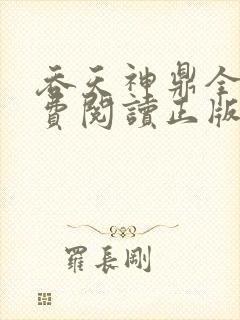 吞天神鼎全
費閱讀正版
羅長剛